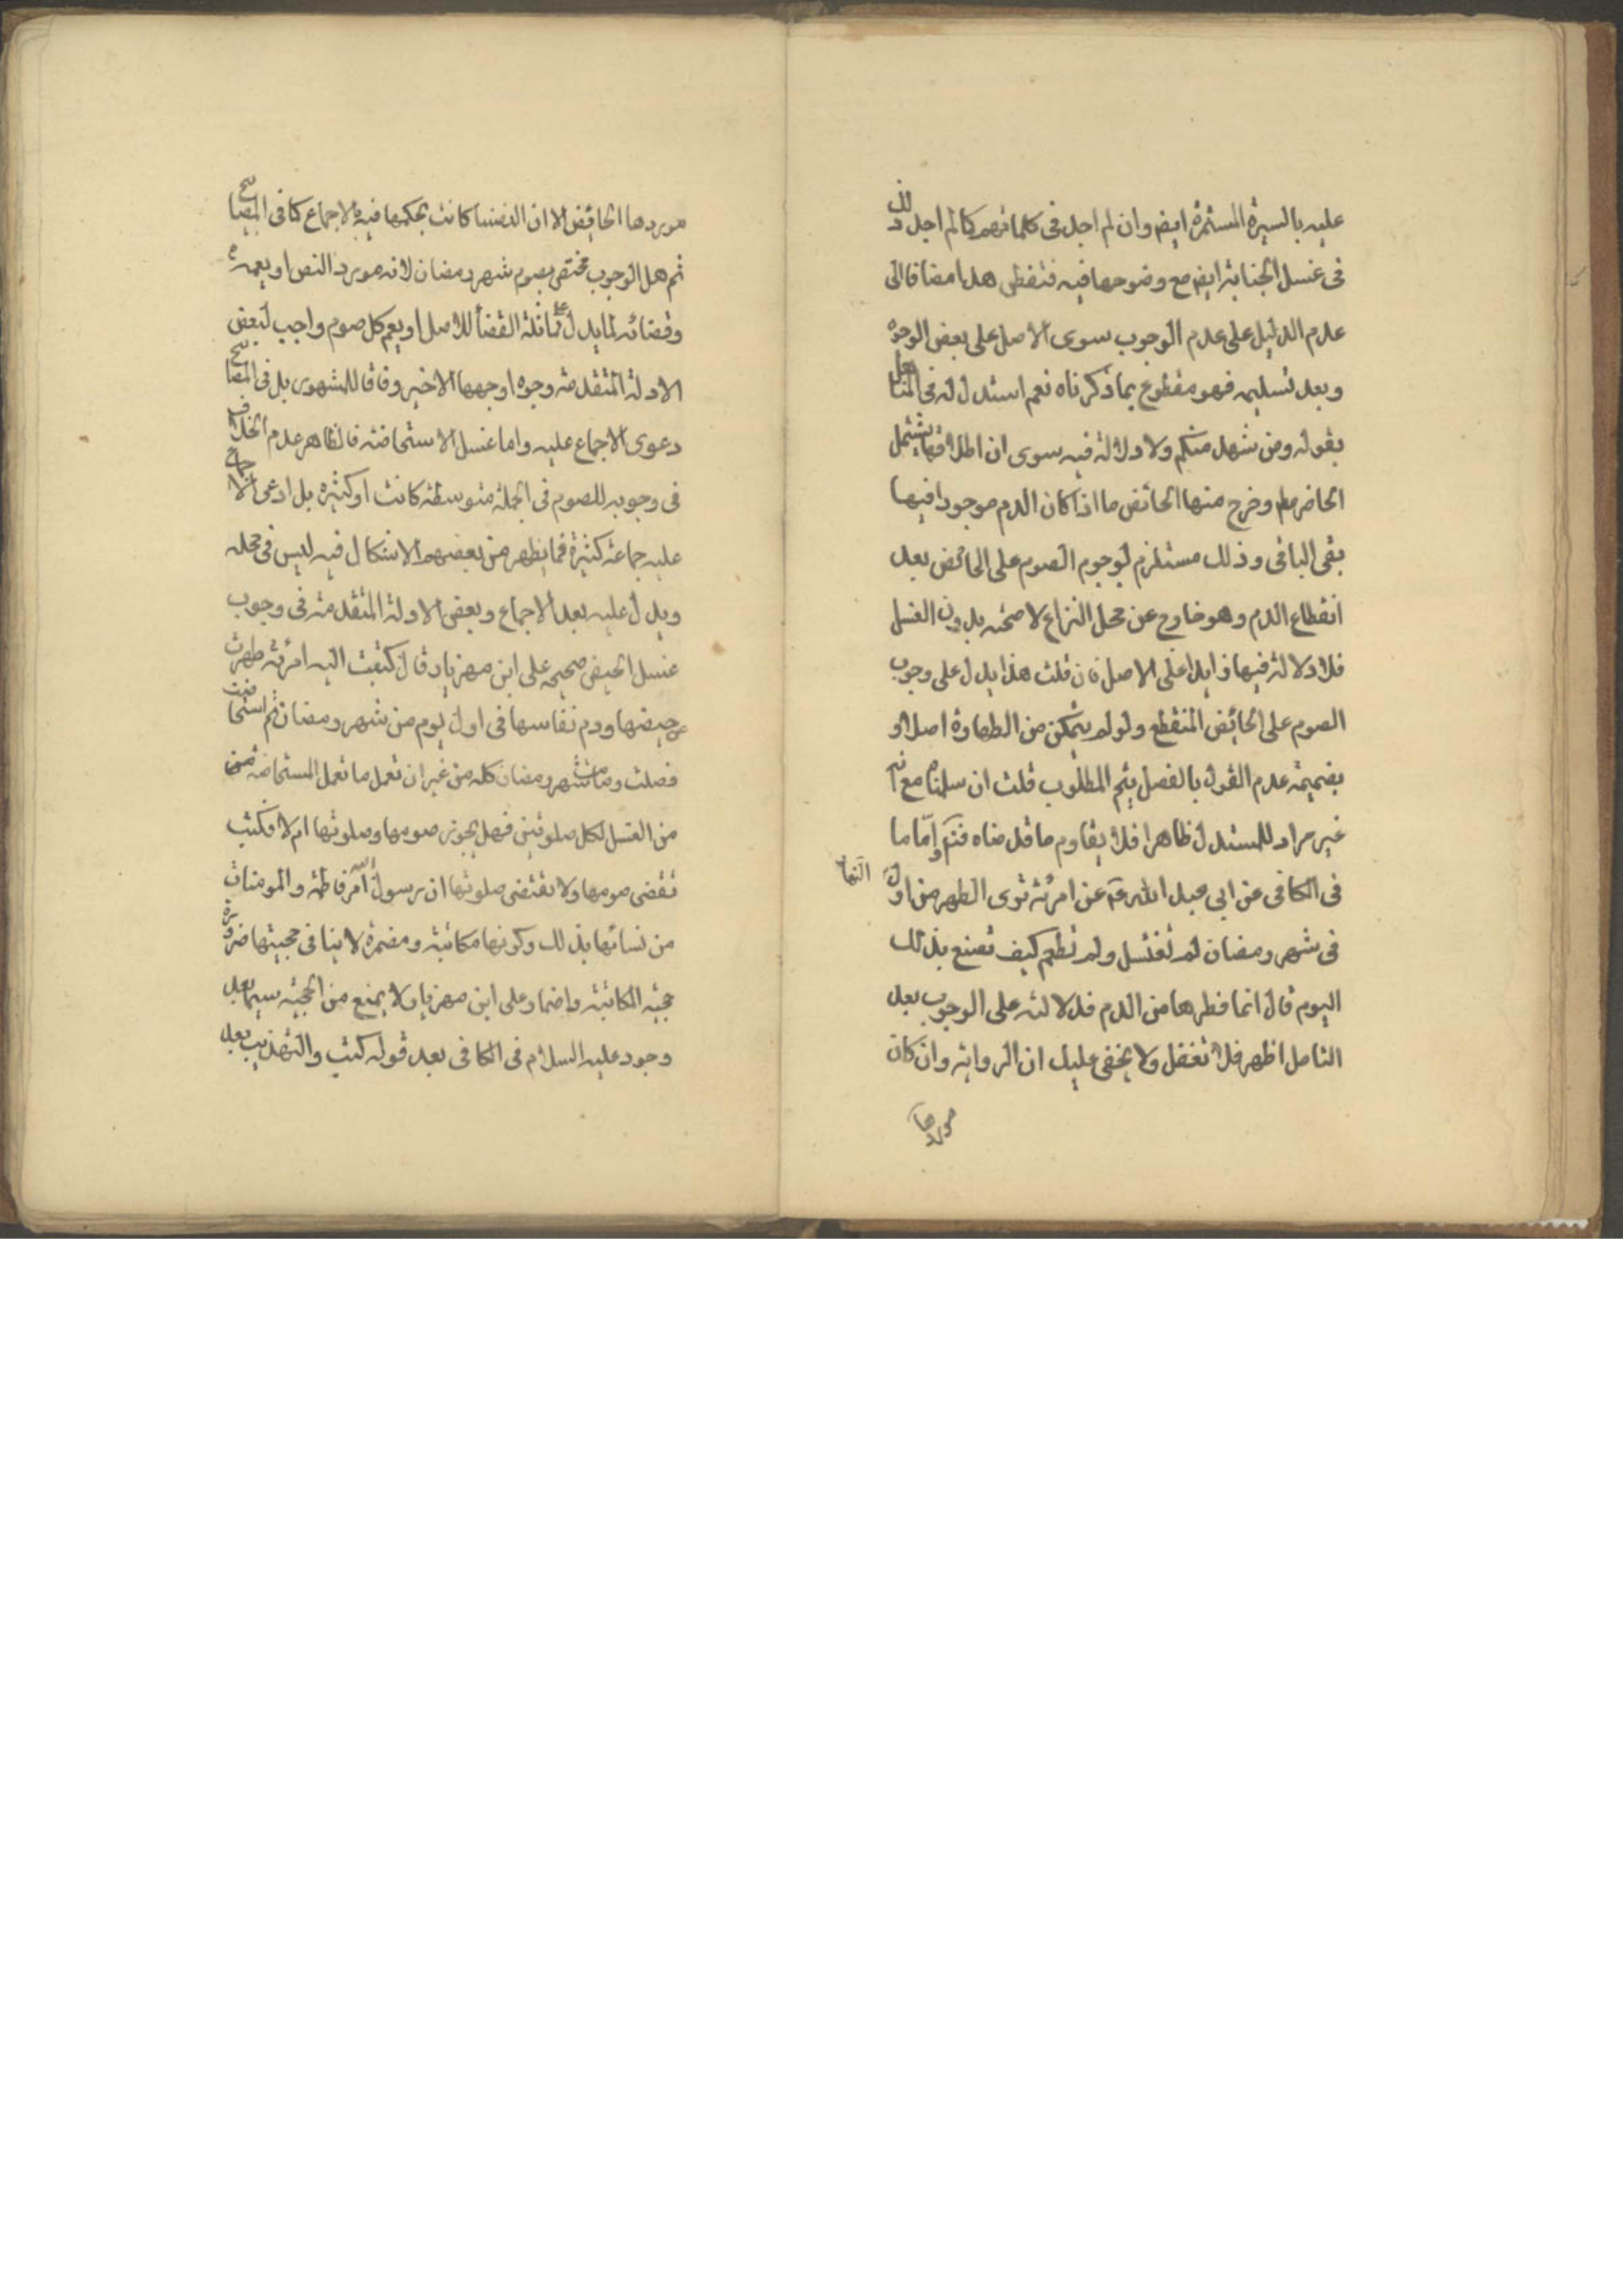 عليه بالسيرة المستمرة ايض وان لم اجد فى كلماتهم كما لم اجد ذلك
فى غسل الجنابة ايض مع وضوحها فيه فتفطن هذا مضافا الى
عدم الدليل على عدم الوجوب سوى الاصل على بعض الوجوه
وبعد تسليمه فهو مقطوع بما ذكرناه نعم استدل له فى المناهل
بقوله ومن شهد منكم ولا دلالة فيه سوى ان اطلاقها يشمل
الحاضر مط وخرج منها الحائض ما اذا كان الدم موجودا فيها
بقى الباقى وذلك مستلزم لوجوم الصوم على الحائض بعد
انقطاع الدم وهو خارج عن محل النزاع لا صحته بدون الغسل
فلا دلالة فيها زايدا على الاصل فان قلت هذا يدل على وجوب
الصوم على الحائض المنقطع ولو لم يتمكن من الطهارة اصلا و
بضميمة عدم القول بالفصل يتم المطلوب قلت ان سلمناه مع انه
غير مراد للمستدل ظاهرا فلا يقاوم ما قدمناه فتم واما ما
فى الكافى عن ابى عبد الله ع عن امرئة ترى الطهر من اول النهار
فى شهر رمضان لم تغتسل ولم تطعم كيف تصنع بذلك
اليوم قال انما فطرها من الدم فدلالته على الوجوب بعد
التامل اظهر فلا تغفل ولا يخفى عليك ان الرواية وان كان
موردها
موردها الحائض الا ان النفسا كانت بحكمها فيه بالاجماع كما فى المصابيح
ثم هل الوجوب مختص بصوم شهر رمضان لانه مورد النص او يعمه
وقضائه لما يدل على مماثلة القضأ للاصل او يعم كل صوم واجب لبعض
الادلة المتقدمة وجوه اوجهها الاخير وفاقا للمشهور بل فى المصابيح
دعوى الاجماع عليه واما غسل الاستحاضة فالظاهر عدم الخلاف
فى وجوبه للصوم فى الجملة متوسطة كانت او كثيره بل ادعى الاجماع
عليه جماعة كثيرة فما يظهر من بعضهم الاشكال فيه ليس فى محله
ويدل عليه بعد الاجماع وبعض الادلة المتقدمة فى وجوب
غسل الحيض صحيحه على ابن مهزيار قال كتبت اليه امرئة طهرت
من حيضها ودم نفاسها فى اول يوم من شهر رمضان ثم استحاضت
فصلت وصامت شهر رمضان كله من غير ان تعمل ما تعمل المستحاضه
من الغسل لكل صلوتين فهل يجوز صومها وصلوتها ام لا فكتب
تقضى صومها ولا تقتضى صلوتها ان رسول الله امر فاطمة والمومنات
من نسائها بذلك وكونها مكاتبة ومضمرة لا ينافى حجيتها ضرورة
حجيه المكاتبة واضمار على ابن مهزيار لا يمنع من الحجية سيما بعد
وجود عليه السلام فى الكافى بعد قوله كتب والتهذيب بعد